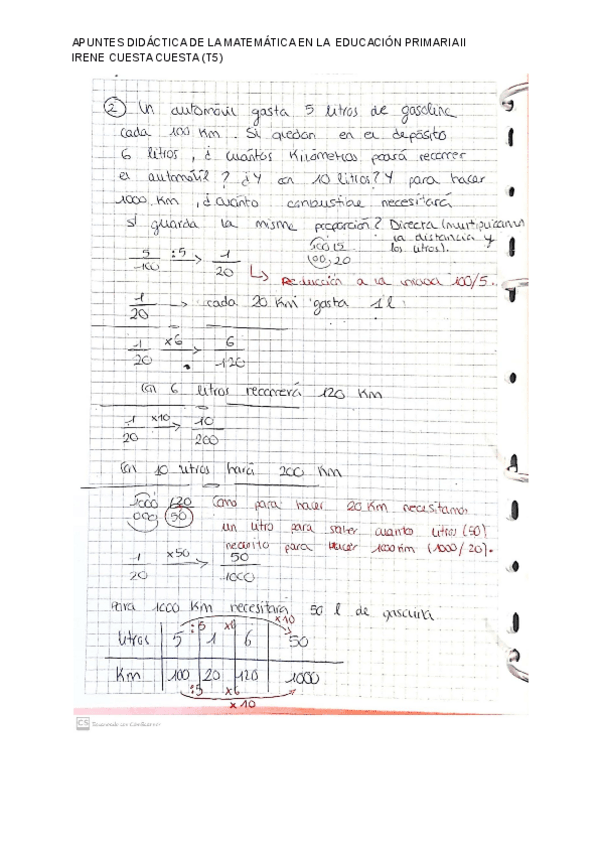 APUNTES DIDÁCTICA DE LA MATEMÁTICA EN LA EDUCACIÓN PRIMARIA II
IRENE CUESTA CUESTA (T5)
② Un automóvil gasta 5 litros de gasolina
cada 100 Km. Si quedan en el depósito
6 litros, ¿ cuántos Kilómetros podrá recorrer
el automóvil? ¿Y con 10 litros? Y para hacer
1000 Km, ¿cuánto combustible necesitará
si guarda la misma proporción? Directa (multiplicamos
la distancia y
los litros).
5/100 :5 → 1/20
100, 20
↳ Reducción a la unidad 100/5..
1/20 → cada 20 Km gasta 1 l
1/20 x6 → 6/120
Con 6 litros recorrerá 120 Km
1/20 x10 → 10/200
Con 10 litros hará 200 Km
1000 20 Como para hacer 20 Km necesitamos
000 50 un litro para saber cuanto litros (50)
necesito para hacer 1000 Km (1000/20).
1/20 x50 → 50/1000
Para 1000 Km necesitará 50 l de gasolina
:5 x6 x10
litros 5 1 6 50
Km 100 20 120 1000
:5 x6
x10
CS